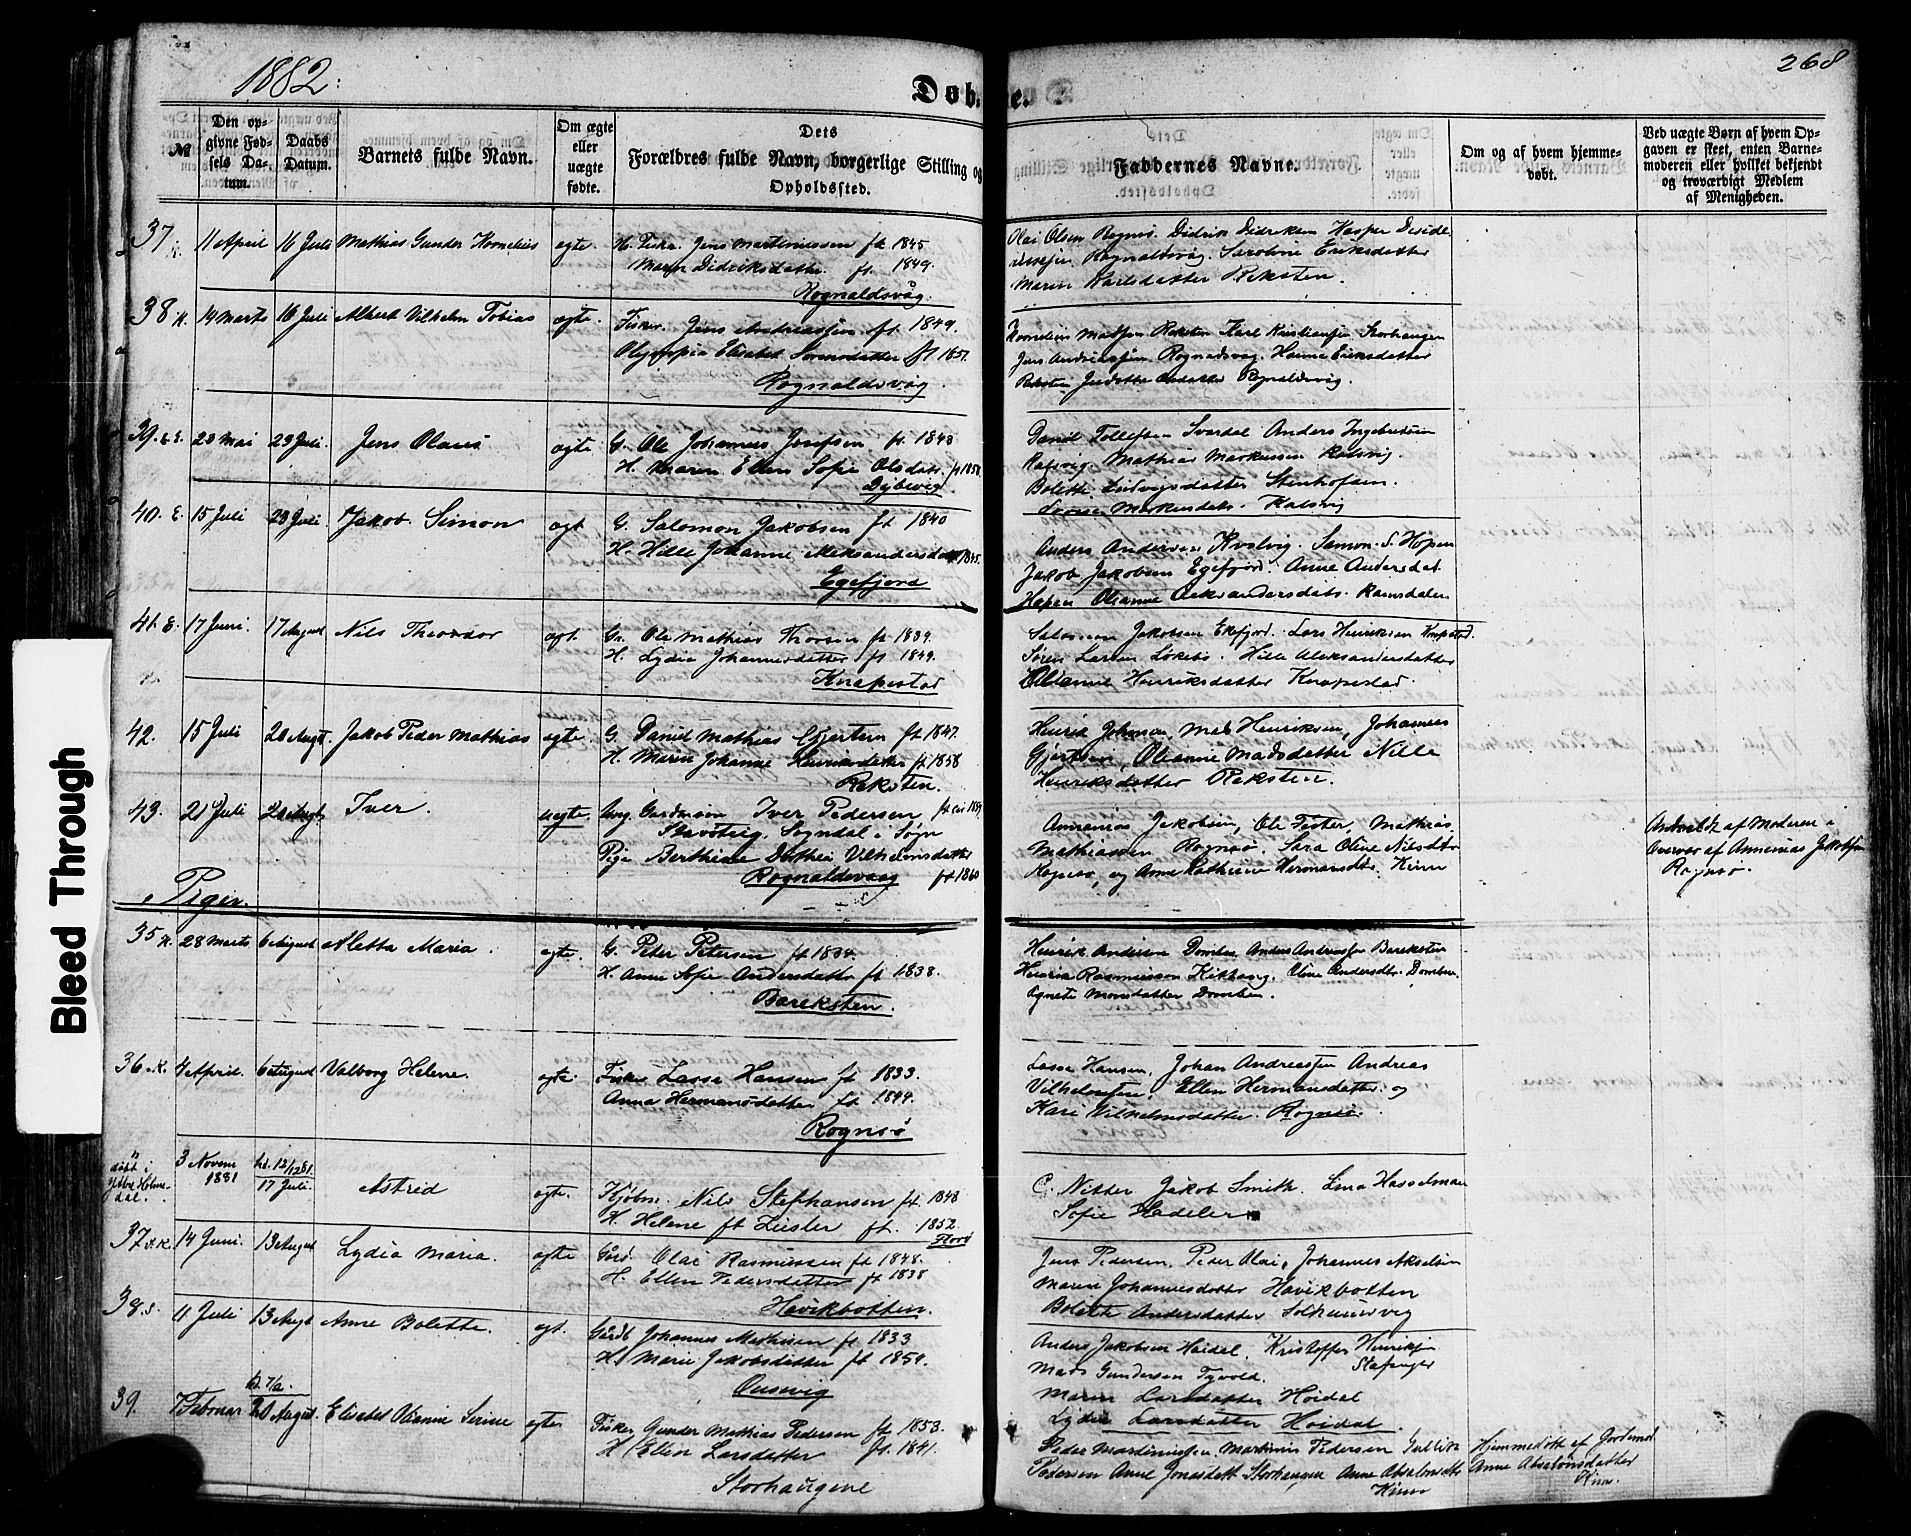 1882.
268
Døb
e.
№
Den opgivne Fødsels Datum.
Daabs Datum.
Barnets fulde Navn.
Om ægte eller uægte fødte.
Dets Forældres fulde Navn, borgerlige Stilling og Opholdssted.
Faddernes Navne.
Om og af hvem hjemmedøbt.
Ved uægte Børn af hvem Opgaven er skeet, enten Barnemoderen eller hvilket bekjendt og troværdigt Medlem af Menigheden.
37 11 April 16 Juli Mathias Gunder Kornelius ægte. Jens Martinussen ft 1845
Maren Didriksdatter. ft. 1849.
Rognaldsvåg.
Olai Olsen Rognsø. Didrik Didriksen Kasper
Rognaldsvåg. Saroline Eriksdatter
Marin Karlsdatter Reksten.
38 K. 14 Marts 16 Juli Albert Vilhelm Tobias ægte. Fisker. Jens Andreassen ft. 1849.
Olympia Elisabet Sørensdatter ft 1857.
Rognaldsvåg
Kornelius Madsen Reksten Karl Kristiansen Storhaugen
Jens Andreassen Rognaldsvåg. Hanne Eriksdatter
Reksten Rognaldsvåg.
39. 28 Mai 23 Juli. Jens Olaus ægte G. Ole Johannes Josefsen ft. 1848
H. Maren Ellen Sofie Olsdatr. ft 1858.
Djbevig
Daniel Tollefsen Svardal Anders Ingebretsen
Kalsvig. Mathias Markussen Kalsvig.
Bolette Ludvigsdatter Stenhofden.
Markusdatr. Kalsvig
40. E. 15 Juli 23 Juli. Jakob Simon ægt. G. Salomon Jakobsen ft 1840
H. Hille Johanne Aleksandersdatter 1845.
Egefjord
Anders Andersen Kvalvig. Samon S. Hopen
Jakob Jakobsen Egefjord. Anne Andersdat
Hopen Olianne Aleksandersdatr. Ramsdalen
41. E. 17 Juni. 17 August Nils Theodor ægt. Gr. Ole Mathias Thorsen ft 1839.
H. Lydia Johannesdatter ft 1849.
Knapstad
Salomon Jakobsen Ekefjord. Lars Henriksen Knapstad.
Søren Larsen Løkebø. Hille Aleksandersdatter
Olianne Henriksdatter Knapestad.
42. 15 Juli 20 Augt. Jakob Peder Mathias ægte. G. Daniel Mathias Gjertsen ft 1847.
H. Marie Johanne Henriksdatter ft 1858
Reksten.
Henrik Johnsen, Mads Henriksen, Johannes
Gjertsen, Olianne Madsdatter Nille
Henriksdatter Reksten.
43. 21 Juli 20 Augt Iver. uægte. Ung. Gardmsøn Iver Pedersen
Sogndal i Sogn
Pige Berthine Dorthea Vilhelmsdatter
Rognaldsvaag ft 1860
Annanias Jakobsen, Ole Fester, Mathias
Mathiassen Rognsø, Sara Oline Nilsdtr
Rognsø, og Anne Kathrine Hermansdtr. Kinn
Anmeldt af Moderen i
Overvær af Annenias Jakobsen
Rognsø.
Piger.
35 K. 28 Marts 6 August Aletta Maria. ægte. G. Peter Petersen ft 1834.
H. Anne Sofie Andersdatter ft 1838.
Bareksten.
Henrik Andersen Domben Anders Andreassen Bareksten
Rasmussen Oline Andersdtr. Domben.
Agnete Monsdatter Domben.
36. K. 4 April. 6 August Valborg Helene. ægte. Fisker Lasse Hansen ft 1833.
Anna Hermansdatter ft 1844.
Rognsø
Lasse Hansen, Johan Andreassen Andreas
Vilhelmsen, Ellen Hermansdatter og
Kari Vilhelmsdatter. Rognsø.
døbt i
3 Novem 1881 hd. 12/12 81. 17 Juli. Astrid ægte. Kjøbm. Nils Steffhansen ft 1848
H. Helene ft Zeisler ft. 1852.
Florø
C. Nitter Jakob Smith. Lina Hasselman
Sofie Hadeler
37. K. 14 Juni. 13 August Lydia Maria. ægte Gård. Olai Rasmussen ft 1848.
H. Ellen Pedersdatter ft 1838
Havikbotten.
Jens Pedersen, Peder Olai, Johannes Akselsen
Maren Johannesdatter Havikbotten
Bolette Andersdatter
38. S. 11 Juli 13 Augt Anne Bolette. ægt. Gårdb Johannes Mathisen ft. 1833
H. Marie Jakobsdatter ft 1854.
Ousevig
Anders Jakobsen Høidal, Kristoffer Henriksen
Stafanger
Mads Gundersen Tyvold.
Maren Larsdatter Høidal
Lydia Larsdatter Høidal.
39. 7 Februar hd. 7/2. 20 August. Elisabet Olianne Serine ægte Fisker Gunder Mathias Pedersen ft 1853.
H. Ellen Larsdatter ft. 1841.
Storhaugene
Peder Martinussen Martinus Pedersen Gullik
Pedersen Anne Jonasdatt Storhaugen Anne Absalonsdtr
Kinn
Hjemmedøbt af Jordemd.
Anne Absalonsdatter
Kinn.
Bleed Through